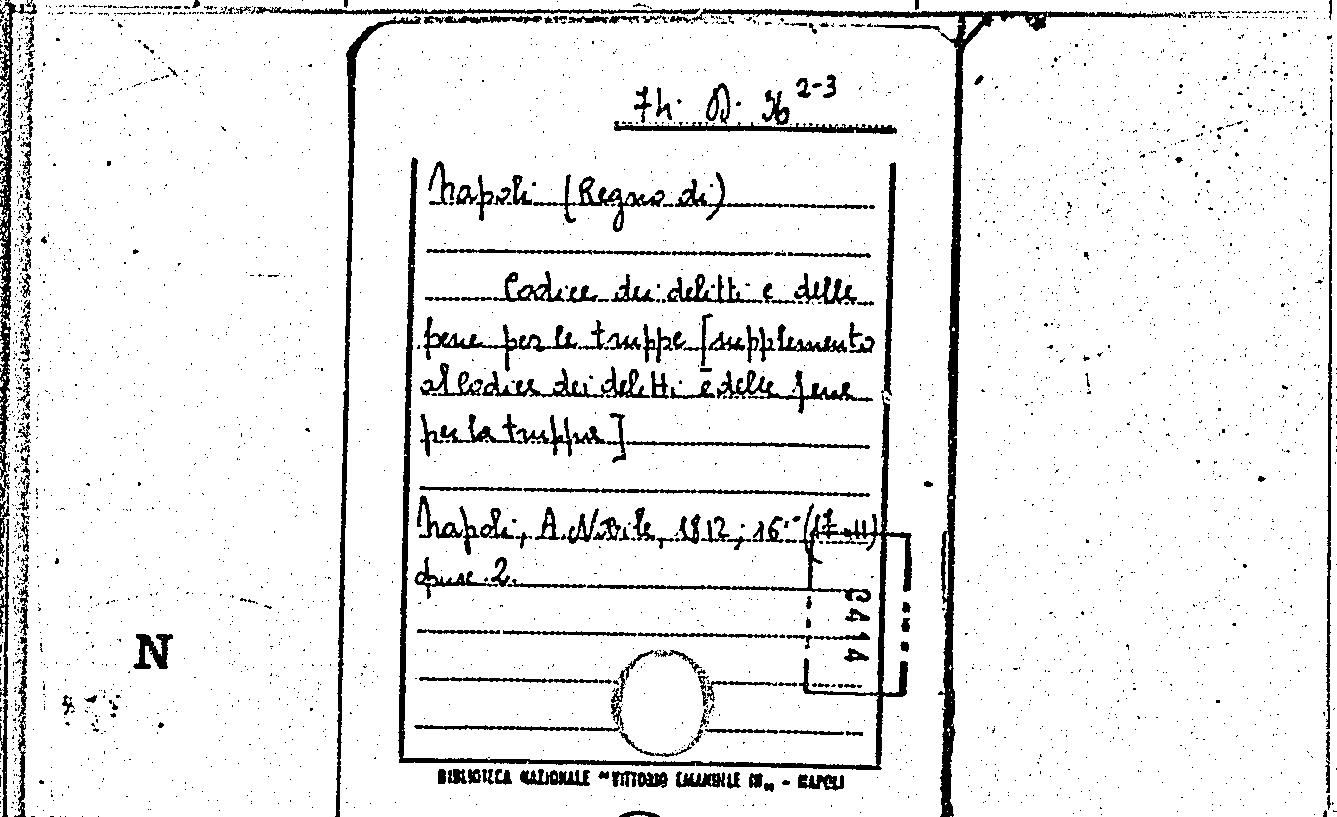 74. D. 36 2-3
Napoli (Regno di)
Codice dei delitti e delle
pene per le truppe [supplemento
al Codice dei delitti e delle pene
per la truppa]
Napoli, A. Nobile, 1812; 16°
opusc. 2.
2414
N
BIBLIOTECA NAZIONALE "VITTORIO EMANUELE III" - NAPOLI